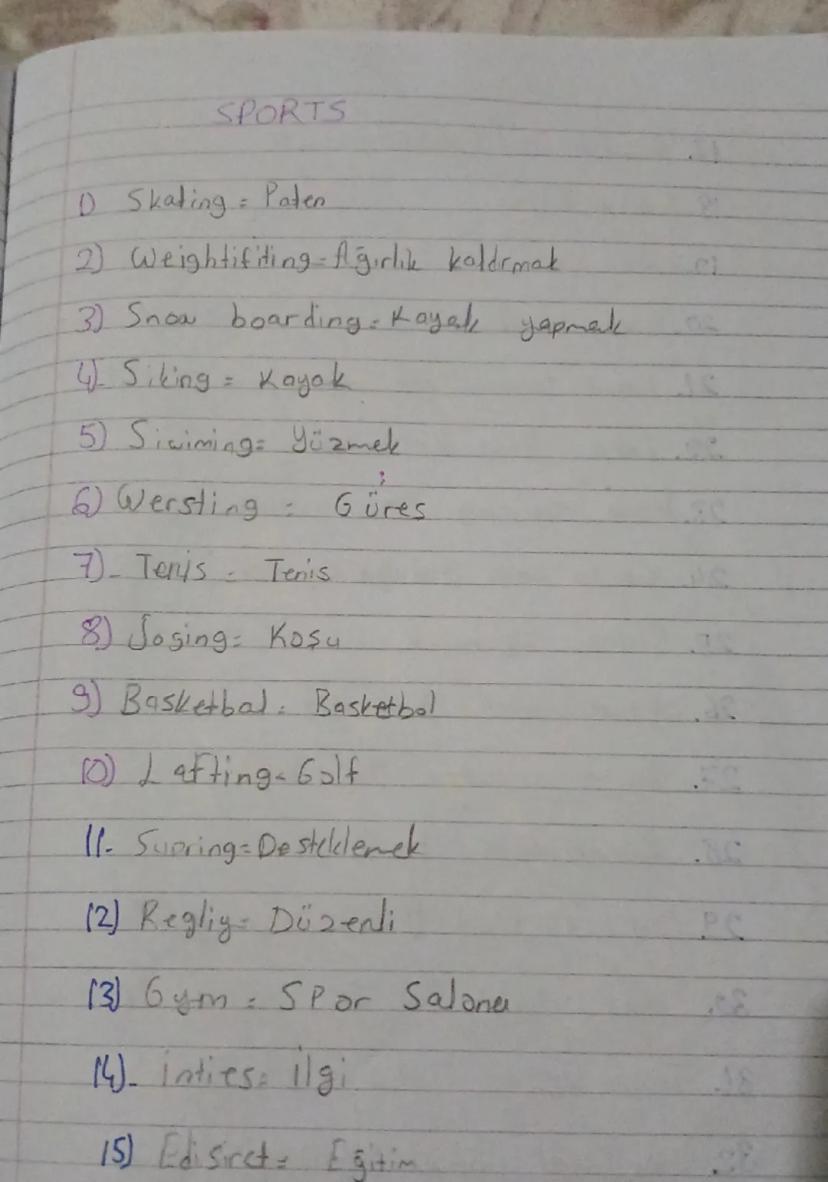 SPORTS
1) Skating = Paten
2) Weightifiting = Ağırlık kaldırmak
3) Snow boarding = Kayak yapmak
4)- Siking = Kayak
5) Siwiming = Yüzmek
6) Wersting = Güres
7)- Tenis = Tenis
8) Joging = Koşu
9) Basketbal = Basketbol
10) Lafting = Golf
11- Suoring = Desteklemek
12) Regliy = Düzenli
13) Gym = SPor Salonu
14)- inties = ilgi
15) Edisiret = Eğitim
17.
18
19
20
21.
22.
23.
24.
25.
26.
27.
28.
29
30.
31.
32.